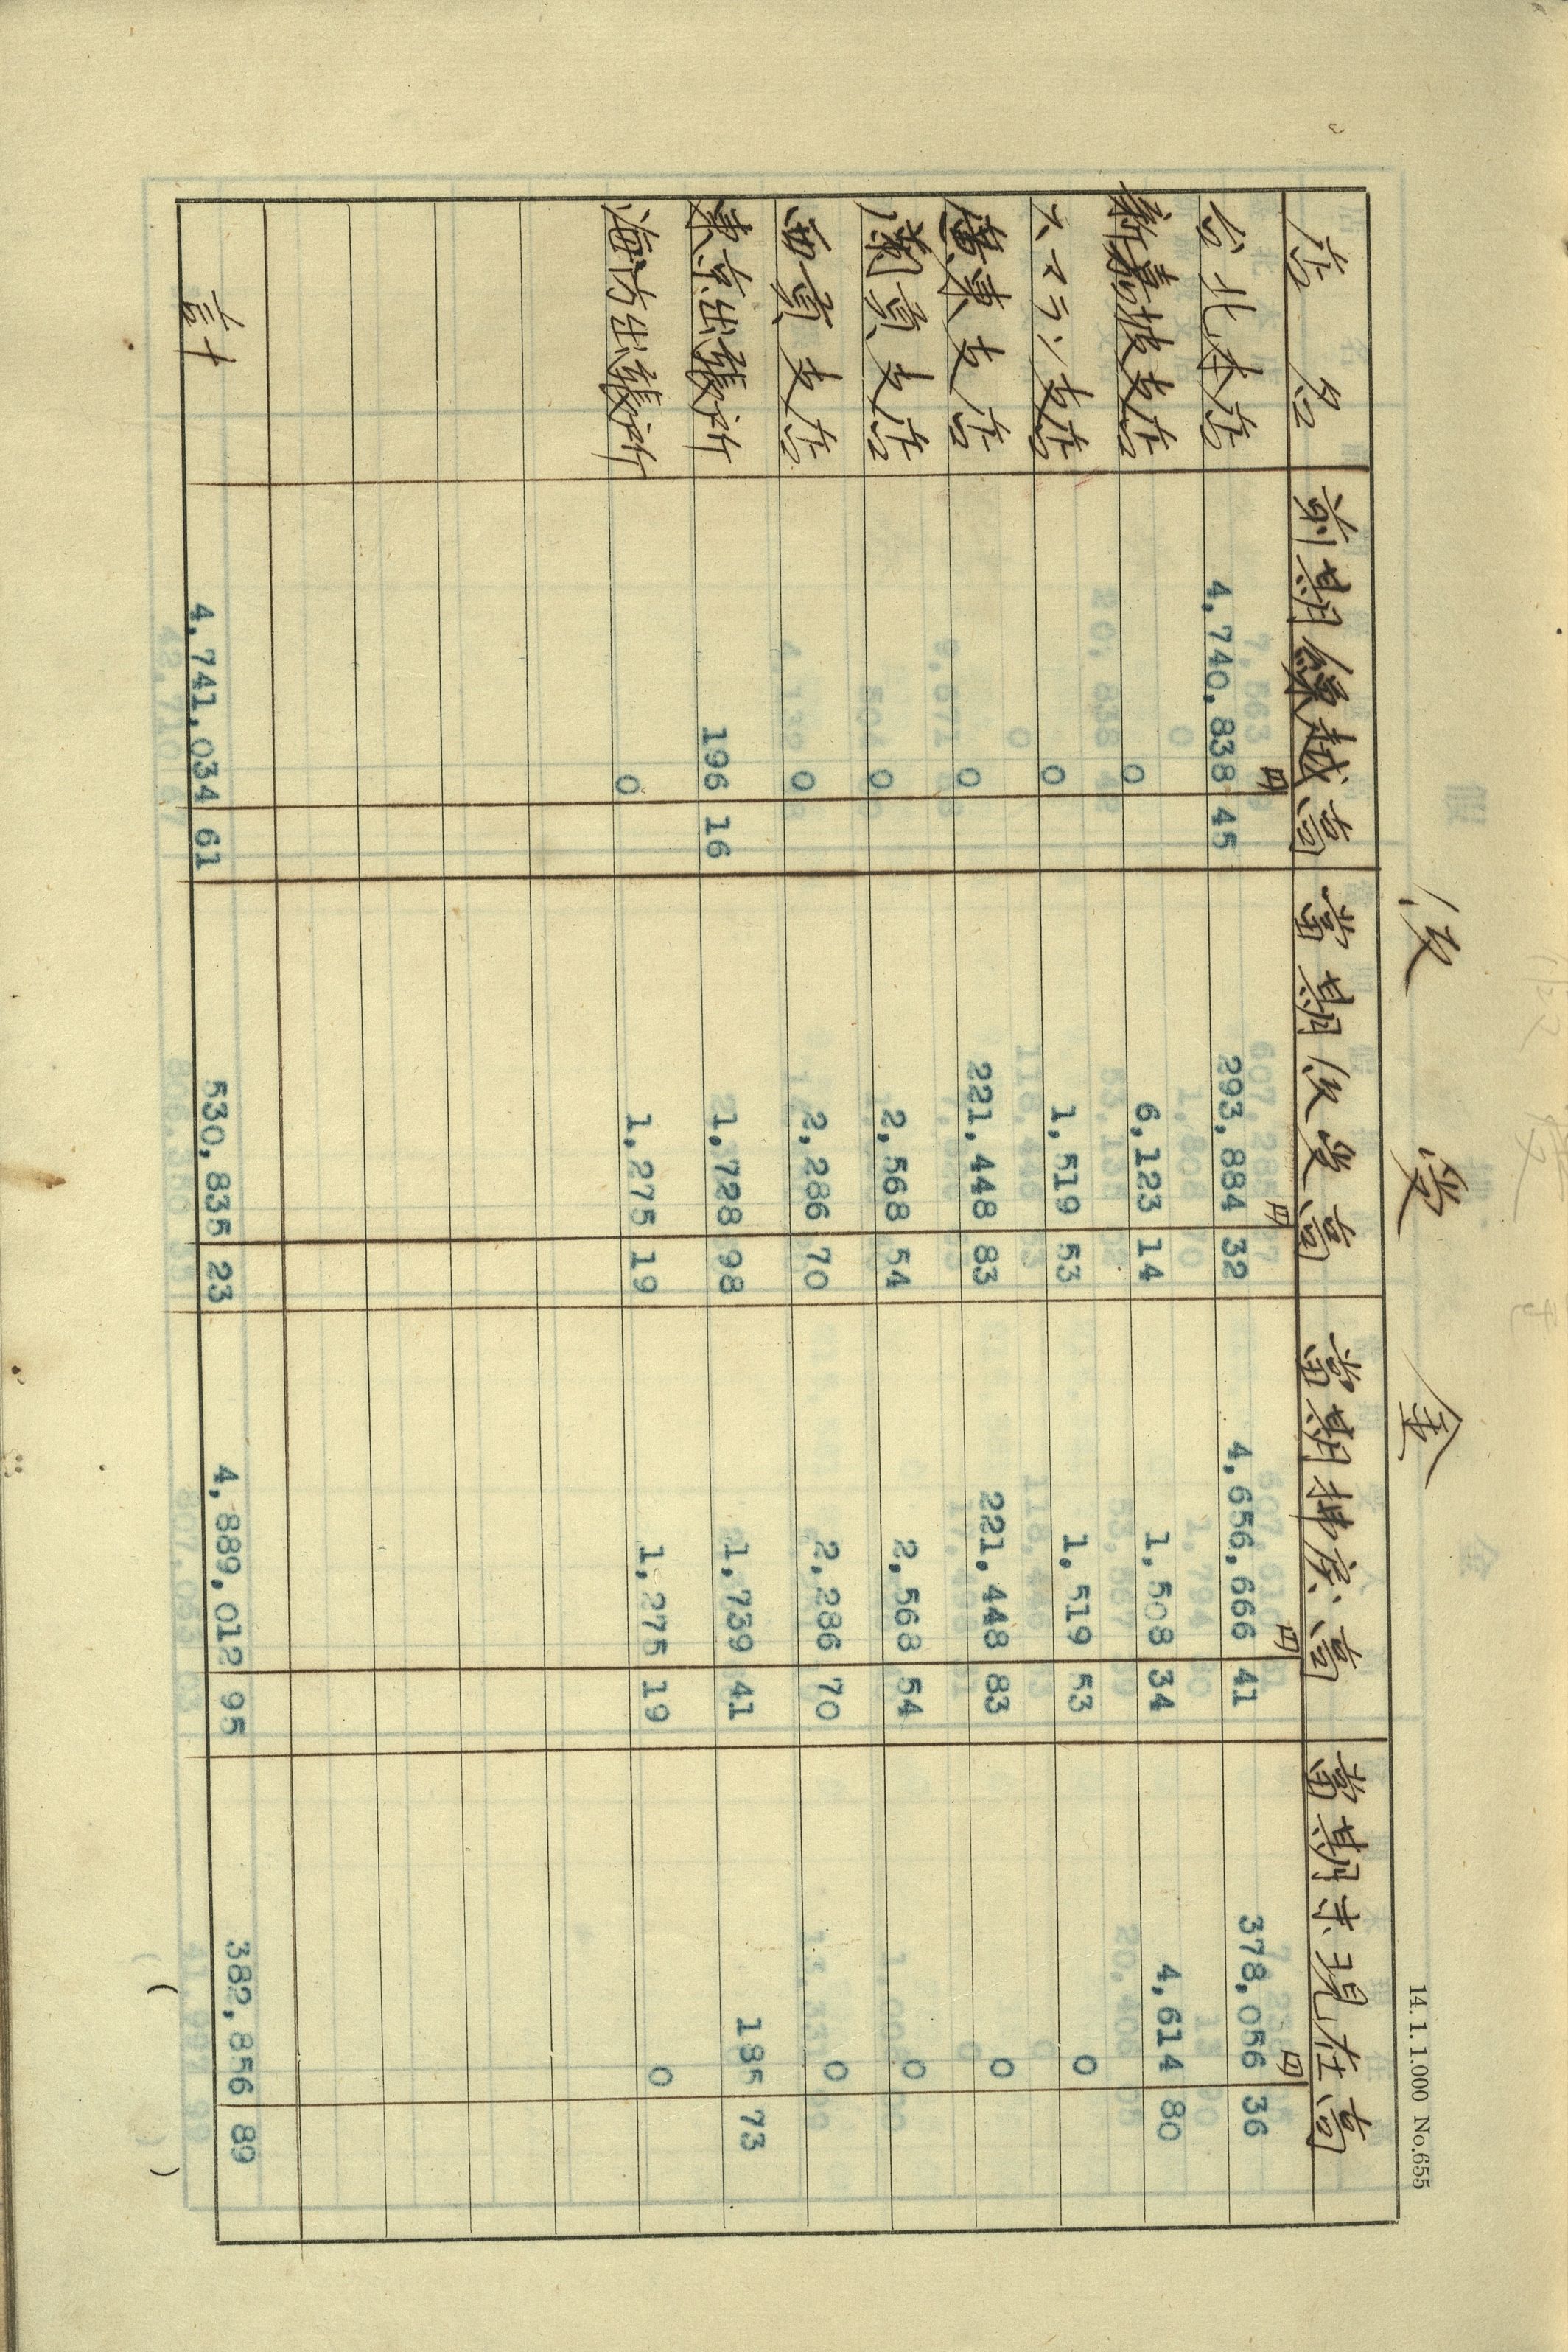 14. 1. 1.000 No.655
仮受金
店名 前期繰越高 当期仮受高 当期拂戻高 当期末現在高
円 円 円 円
台北本店 4,740,838 45 293,884 32 4,656,666 41 378,056 36
新嘉坡支店 0 6,123 14 1,508 34 4,614 80
スマラン支店 0 1,519 53 1,519 53 0
廣東支店 0 221,448 83 221,448 83 0
蘭貢支店 0 2,568 54 2,568 54 0
西貢支店 0 2,286 70 2,286 70 0
東京出張所 196 16 1,728 98 1,739 41 185 73
海防出張所 0 1,275 19 1,275 19 0
計 4,741,034 61 530,835 23 4,889,012 95 382,856 89